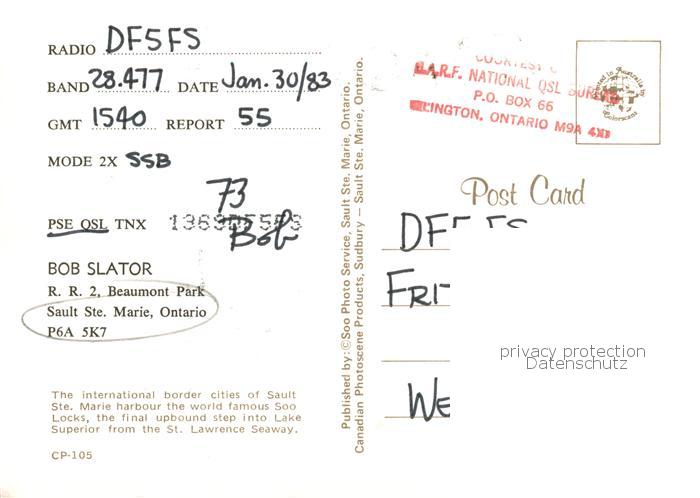 RADIO DF5FS
BAND 28.477 DATE Jan. 30/83
GMT 1540 REPORT 55
MODE 2X SSB
73
PSE QSL TNX
Bob
BOB SLATOR
R. R. 2, Beaumont Park
Sault Ste. Marie, Ontario
P6A 5K7
The international border cities of Sault
Ste. Marie harbour the world famous Soo
Locks, the final upbound step into Lake
Superior from the St. Lawrence Seaway.
CP-105
Published by: ©Soo Photo Service, Sault Ste. Marie, Ontario.
Canadian Photoscene Products, Sudbury — Sault Ste. Marie, Ontario.
COURTESY
NATIONAL QSL
P.O. BOX 66
ONTARIO M9A
Post Card
privacy protection
Datenschutz